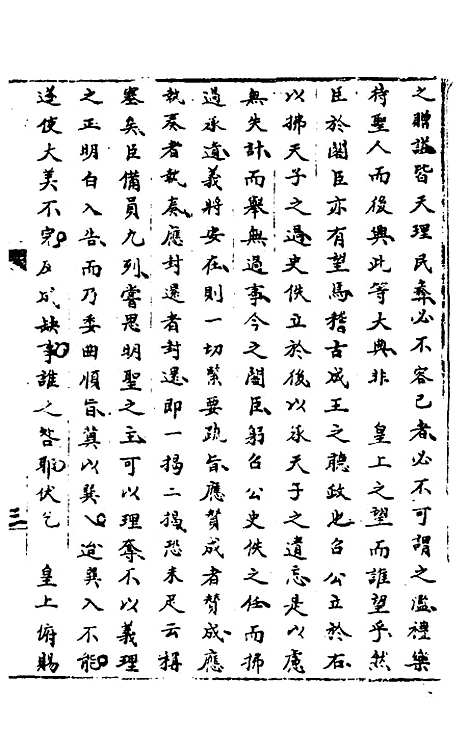 之贈諡皆天理民彝必不容已者必不可謂之濫禮樂
待聖人而後興此等大典非　皇上之望而誰望乎然
臣於閣臣亦有望焉稽古成王之聽政也召公立於右
以拂天子之過史佚立於後以承天子之遺忘是以慮
無失計而舉無過事今之閣臣躬召公史佚之任而拂
過承遺義將安在則一切緊要疏旨應贊成者贊成應
執奏者執奏應封還者封還即一揭二揭恐未足云稱
塞矣臣備員九列嘗思明聖之主可以理奪不以義理
之正明白入告而乃委曲順旨冀以巽入迨巽入不能
遂使大美不完反成缺事誰之咎耶伏乞　皇上俯賜
三